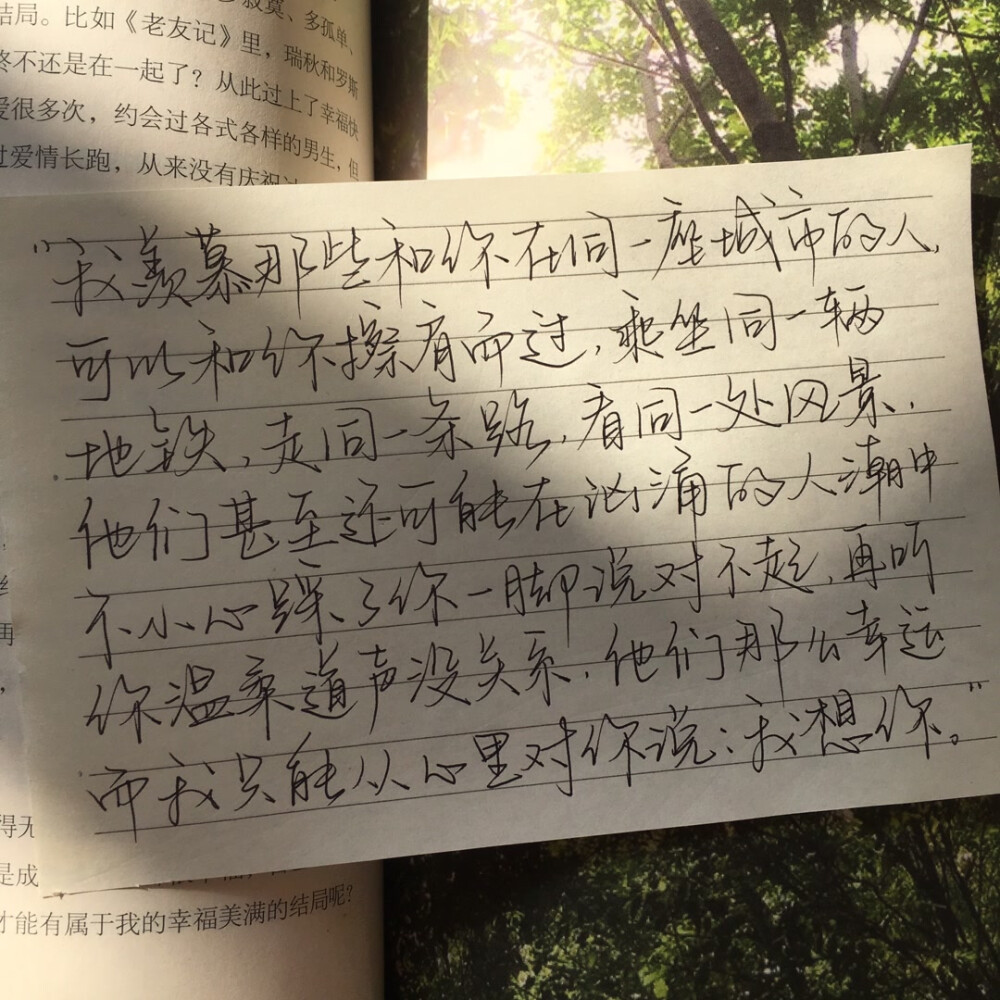 寂寞、多孤单、
结局。比如《老友记》里，瑞秋和罗斯
终不还是在一起了？从此过上了幸福快
爱很多次，约会过各式各样的男生，但
过爱情长跑，从来没有庆祝过
“我羡慕那些和你在同一座城市的人，
可以和你擦肩而过，乘坐同一辆
地铁，走同一条路，看同一处风景，
他们甚至还可能在汹涌的人潮中
不小心踩了你一脚说对不起，再听
你温柔道声没关系，他们那么幸运
而我只能从心里对你说：我想你。”
再
得无
是成
才能有属于我的幸福美满的结局呢？